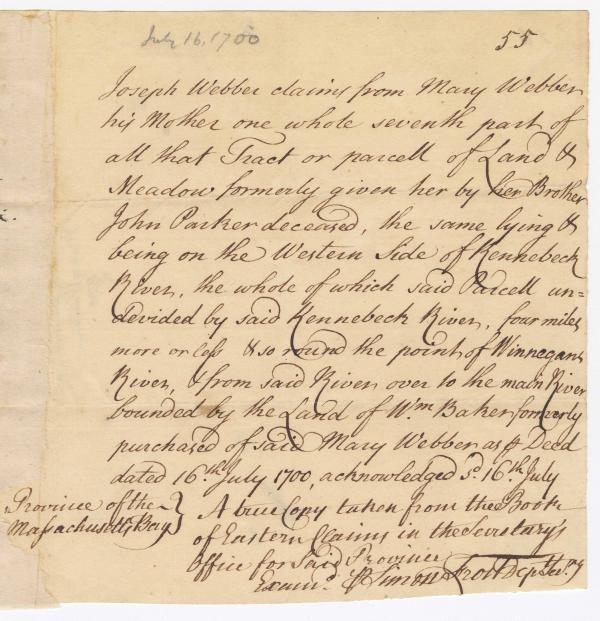 July 16, 1700
55
Joseph Webber claims from Mary Webber
his Mother one whole seventh part of
all that Tract or parcell of Land &
Meadow formerly given her by her Brother
John Parker deceased, the same lying &
being on the Western Side of Kennebeck
River, the whole of which said Parcell un=
devided by said Kennebeck River, four miles
more or less & so round the point of Winnegans
River, & from said River over to the main River
bounded by the Land of Wm Baker formerly
purchased of said Mary Webber as p Deed
dated 16th July 1700, acknowledged sd. 16th July
Province of the
Massachusetts Bay }
A true Copy taken from the Book
of Eastern Claims in the Secretary's
Office for Said Province
Examd. p Simon Frost Dep Secry